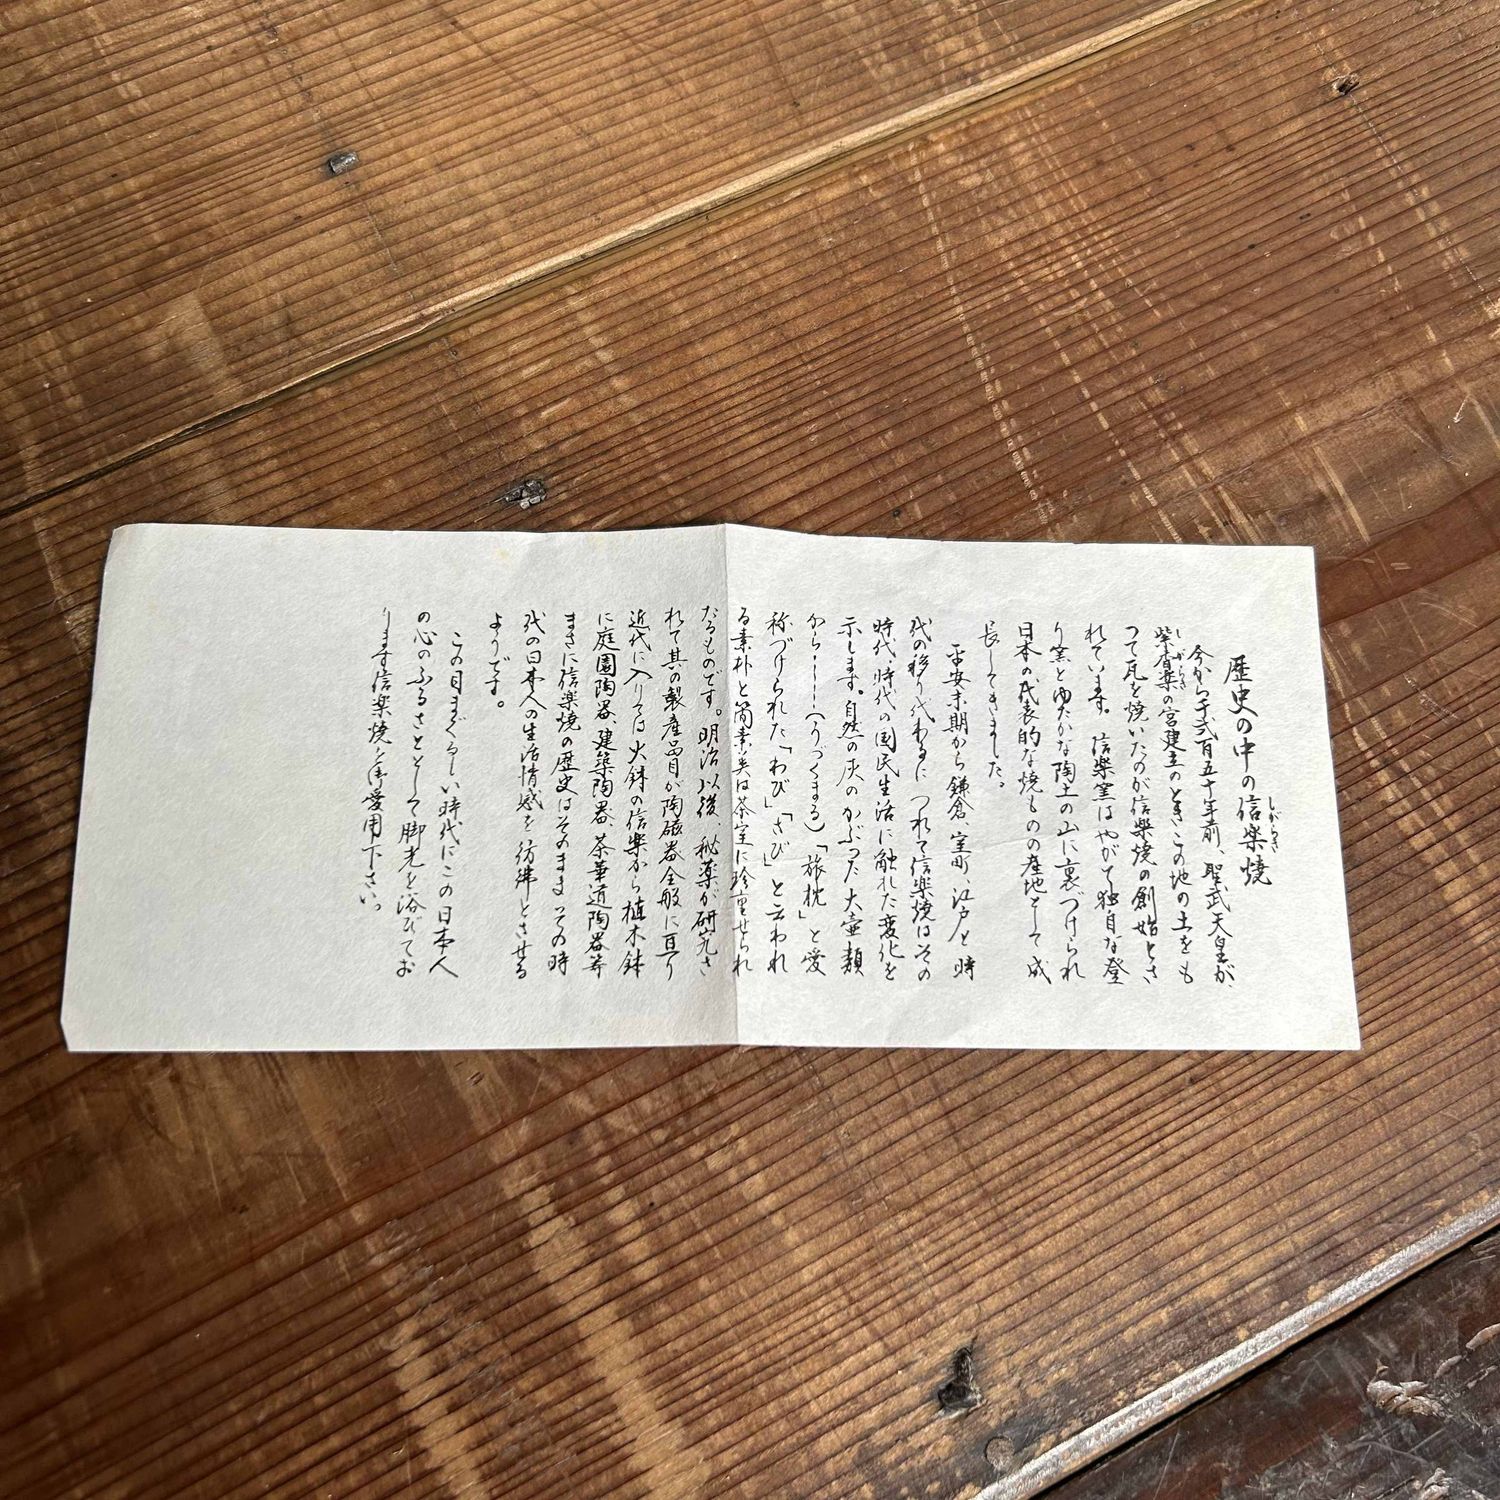 歴史の中の信楽焼
しがらき
今から千弐百五十年前、聖武天皇が、
紫香楽の宮建立のときこの地の土をも
しがらき
つて瓦を焼いたのが信楽焼の創始とさ
れています。信楽窯はやがて独自な登
り窯とゆたかな陶土の山に裏づけられ
日本の代表的な焼ものの産地として成
長してきました。
平安末期から鎌倉、室町、江戸と時
代の移り代わるに つれて信楽焼はその
時代、時代の国民生活に触れた変化を
示します。自然の灰のかぶった大壷類
から(うづくまる)「旅枕」と愛
称づけられた「わび」「さび」と云われ
る素朴と簡素美は茶室に珍重せられ
たるものです。明治以後、秘薬が研究さ
れて其の製産品目が陶磁器全般に亘り
近代に入りては火鉢の信楽から植木鉢
に庭園陶器、建築陶器、茶華道陶器等
まさに信楽焼の歴史はそのまま その時
代の日本人の生活情感を彷彿とさせる
ようです。
この目まぐるしい時代にこの日本人
の心のふるさととして脚光を浴びてお
ります信楽焼を御愛用下さい。